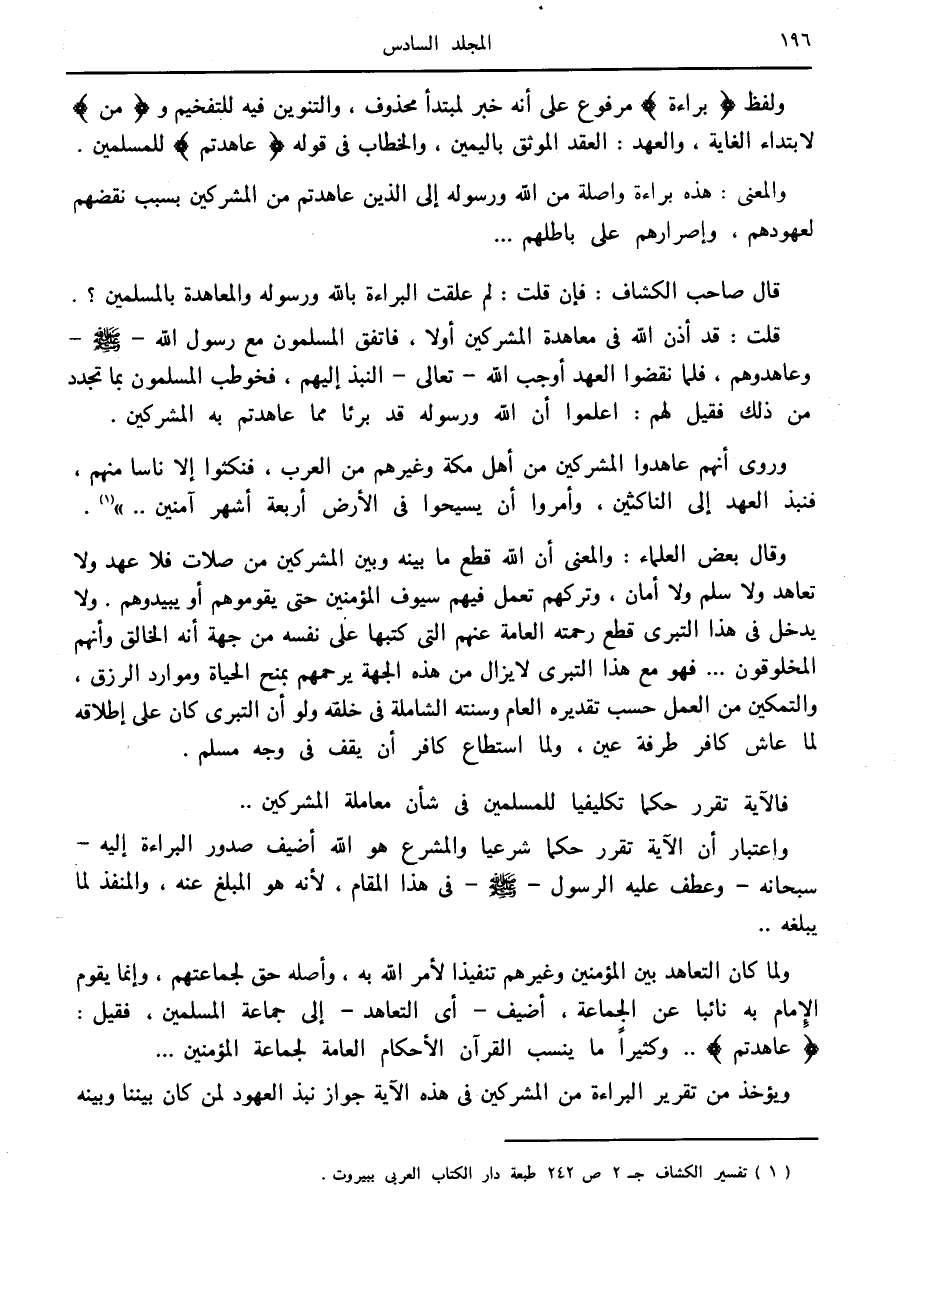 ١٩٦
المجلد السادس
ولفظ ﴿ براءة ﴾ مرفوع على أنه خبر لمبتدأ محذوف ، والتنوين فيه للتفخيم و ﴿ من ﴾
لابتداء الغاية ، والعهد : العقد الموثق باليمين ، والخطاب فى قوله ﴿ عاهدتم ﴾ للمسلمين .
والمعنى : هذه براءة واصلة من الله ورسوله إلى الذين عاهدتم من المشركين بسبب نقضهم
لعهودهم ، وإصرارهم على باطلهم ...
قال صاحب الكشاف : فإن قلت : لم علقت البراءة بالله ورسوله والمعاهدة بالمسلمين ؟ .
قلت : قد أذن الله فى معاهدة المشركين أولا ، فاتفق المسلمون مع رسول الله – ﷺ –
وعاهدوهم ، فلما نقضوا العهد أوجب الله – تعالى – النبذ إليهم ، فخوطب المسلمون بما تجدد
من ذلك فقيل لهم : اعلموا أن الله ورسوله قد برئا مما عاهدتم به المشركين .
وروى أنهم عاهدوا المشركين من أهل مكة وغيرهم من العرب ، فنكثوا إلا ناسا منهم ،
فنبذ العهد إلى الناكثين ، وأمروا أن يسيحوا فى الأرض أربعة أشهر آمنين .. »(١) .
وقال بعض العلماء : والمعنى أن الله قطع ما بينه وبين المشركين من صلات فلا عهد ولا
تعاهد ولا سلم ولا أمان ، وتركهم تعمل فيهم سيوف المؤمنين حتى يقوموهم أو يبيدوهم . ولا
يدخل فى هذا التبرى قطع رحمته العامة عنهم التى كتبها على نفسه من جهة أنه الخالق وأنهم
المخلوقون ... فهو مع هذا التبرى لايزال من هذه الجهة يرحمهم بمنح الحياة وموارد الرزق ،
والتمكين من العمل حسب تقديره العام وسنته الشاملة فى خلقه ولو أن التبرى كان على إطلاقه
لما عاش كافر طرفة عين ، ولما استطاع كافر أن يقف فى وجه مسلم .
فالآية تقرر حكما تكليفيا للمسلمين فى شأن معاملة المشركين ..
واعتبار أن الآية تقرر حكما شرعيا والمشرع هو الله أضيف صدور البراءة إليه –
سبحانه – وعطف عليه الرسول – ﷺ – فى هذا المقام ، لأنه هو المبلغ عنه ، والمنفذ لما
يبلغه ..
ولما كان التعاهد بين المؤمنين وغيرهم تنفيذا لأمر الله به ، وأصله حق لجماعتهم ، وإنما يقوم
الإمام به نائبا عن الجماعة ، أضيف – أى التعاهد – إلى جماعة المسلمين ، فقيل :
﴿ عاهدتم ﴾ .. وكثيراً ما ينسب القرآن الأحكام العامة لجماعة المؤمنين ...
ويؤخذ من تقرير البراءة من المشركين فى هذه الآية جواز نبذ العهود لمن كان بيننا وبينه
( ١ ) تفسير الكشاف جـ ٢ ص ٢٤٢ طبعة دار الكتاب العربى ببيروت .